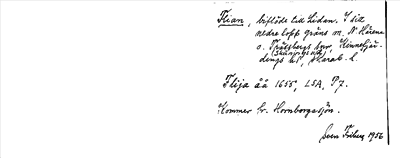 Flian, biflöde till Lidan. I sitt
nedre lopp gräns m. N. Härene
o. Trävattna snr, Kinnefjär-
dings hd, Skarab. l.
Flija åå 1655, LSA, P7.
Kommer fr. Hornborgasjön.
Sven Friberg 1956